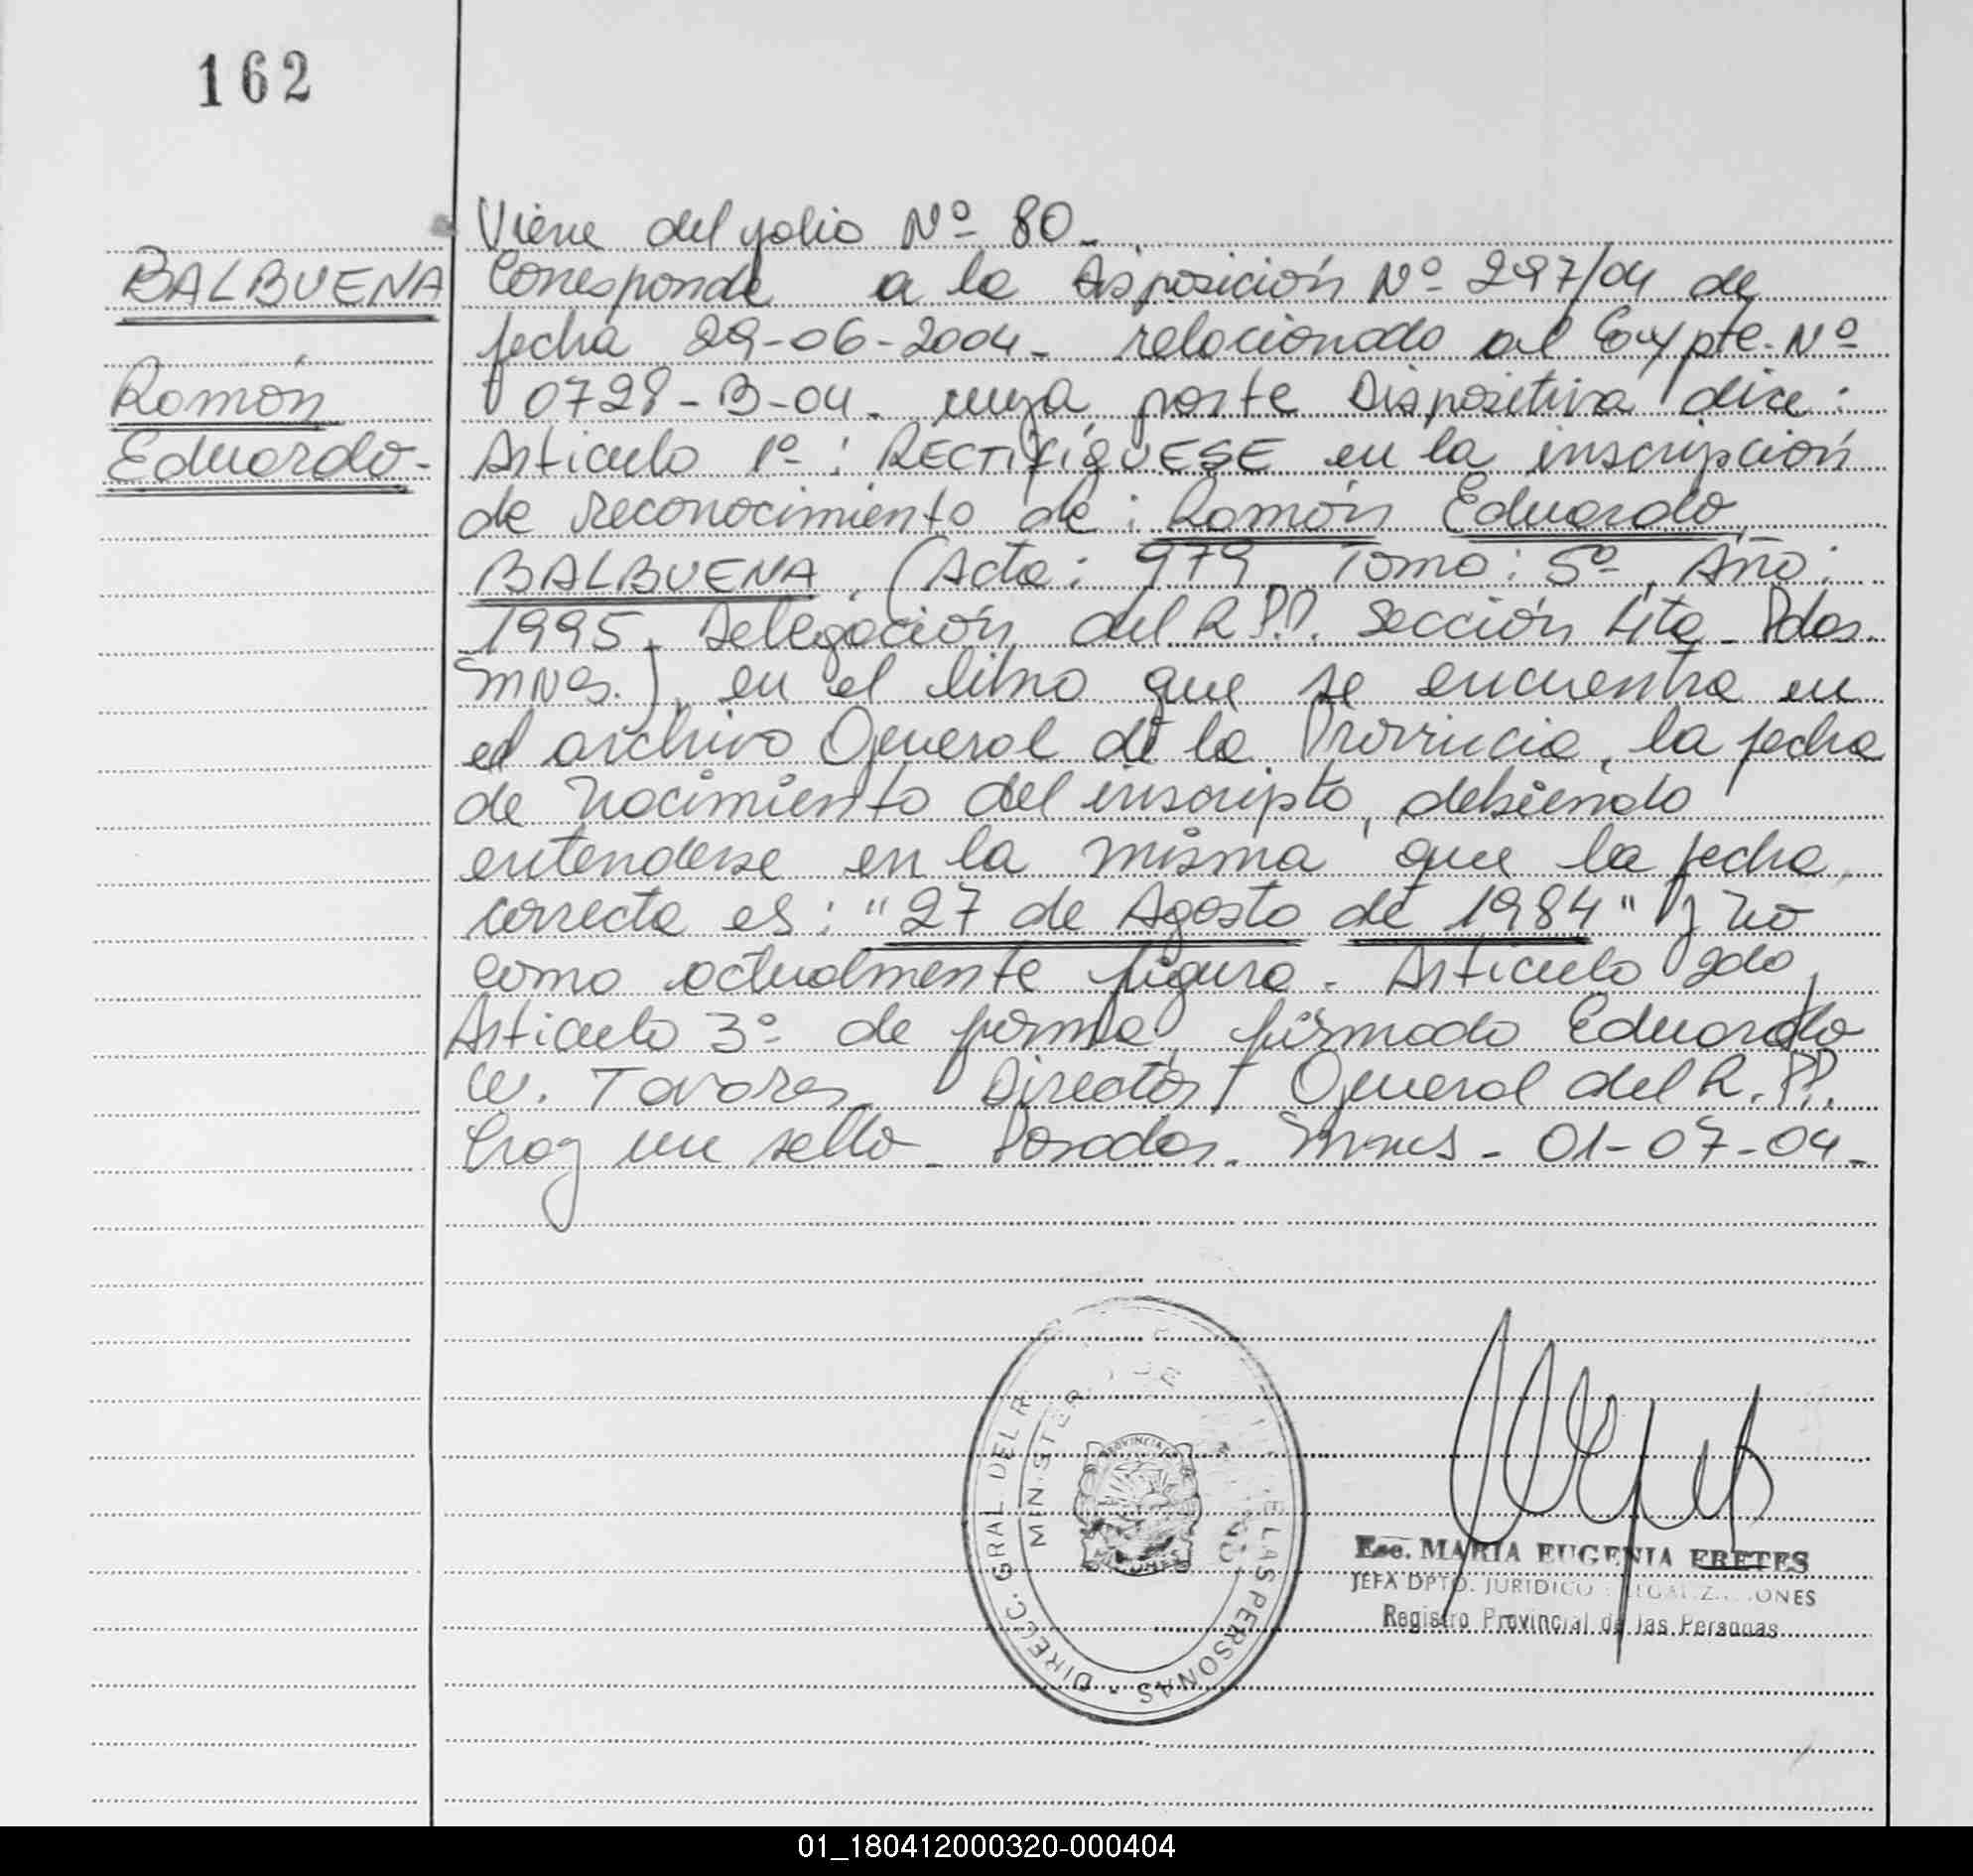 162
Viene del folio Nº 80-
BALBUENA Corresponde a la Disposición Nº 297/04 de
fecha 29-06-2004- relacionado al Expte. Nº
Ramón 0728-B-04- cuya parte Dispositiva dice:
Eduardo- Artículo 1º: RECTIFIQUESE en la inscripción
de reconocimiento de: Ramón Eduardo
BALBUENA. (Acta: 979, Tomo: 5º, Año:
1995, Delegación del R.P.P. Sección Pdas.
Mnes.), en el libro que se encuentra en
el archivo General de la Provincia, la fecha
de nacimiento del inscripto, debiendo
entenderse en la misma que la fecha
correcta es: "27 de Agosto de 1984" y no
como actualmente figura. Artículo 2do,
Artículo 3º de forma, firmado Eduardo
W. Tavares Director General del R.P.P.
hay un sello- Posadas. Mnes- 01-07-04-
DIRECC. GRAL DEL R LAS PERSONAS -
MINISTER
PROVINCIA
Esc. MARIA EUGENIA ERETES
JEFA DPTO. JURIDICO
Registro Provincial de las Personas
01_180412000320-000404